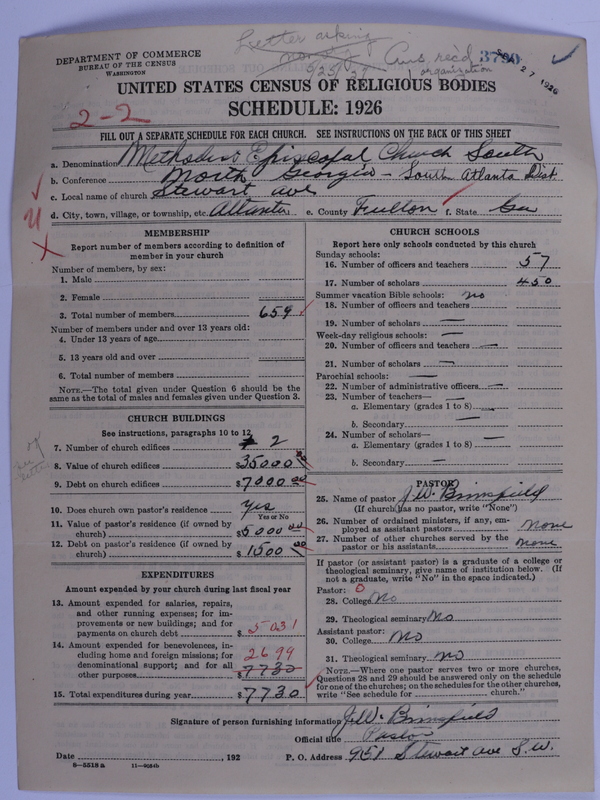 DEPARTMENT OF COMMERCE
BUREAU OF THE CENSUS
WASHINGTON
Letter asking
5/25/27
organization
3790
27 1926
UNITED STATES CENSUS OF RELIGIOUS BODIES
SCHEDULE: 1926
2-2
FILL OUT A SEPARATE SCHEDULE FOR EACH CHURCH. SEE INSTRUCTIONS ON THE BACK OF THIS SHEET
a. Denomination Methodist Episcopal Church South
b. Conference North Georgia - South Atlanta Dist
c. Local name of church Stewart ave
d. City, town, village, or township, etc. Atlanta e. County Fulton f. State Ga
MEMBERSHIP
Report number of members according to definition of
member in your church
Number of members, by sex:
1. Male
2. Female
3. Total number of members 659
Number of members under and over 13 years old:
4. Under 13 years of age
5. 13 years old and over
6. Total number of members
NOTE.—The total given under Question 6 should be the
same as the total of males and females given under Question 3.
CHURCH BUILDINGS
See instructions, paragraphs 10 to 12
7. Number of church edifices 2
8. Value of church edifices $35000 00
9. Debt on church edifices $7000 00
10. Does church own pastor's residence yes
Yes or No
11. Value of pastor's residence (if owned by
church) $5000 00
12. Debt on pastor's residence (if owned by
church) $1500 00
EXPENDITURES
Amount expended by your church during last fiscal year
13. Amount expended for salaries, repairs,
and other running expenses; for im-
provements or new buildings; and for
payments on church debt $5031
14. Amount expended for benevolences, in-
cluding home and foreign missions; for
denominational support; and for all
other purposes 2699 $7730
15. Total expenditures during year $7730
CHURCH SCHOOLS
Report here only schools conducted by this church
Sunday schools:
16. Number of officers and teachers 57
17. Number of scholars 450
Summer vacation Bible schools: no
18. Number of officers and teachers
19. Number of scholars —
Week-day religious schools: —
20. Number of officers and teachers —
21. Number of scholars —
Parochial schools: —
22. Number of administrative officers —
23. Number of teachers—
a. Elementary (grades 1 to 8) —
b. Secondary —
24. Number of scholars—
a. Elementary (grades 1 to 8) —
b. Secondary —
PASTOR
25. Name of pastor J.W. Brinsfield
(If church has no pastor, write "None")
26. Number of ordained ministers, if any, em-
ployed as assistant pastors none
27. Number of other churches served by the
pastor or his assistants none
If pastor (or assistant pastor) is a graduate of a college or
theological seminary, give name of institution below. (If
not a graduate, write "No" in the space indicated.)
Pastor: 0
28. College No
29. Theological seminary No
Assistant pastor:
30. College No
31. Theological seminary No
NOTE.—Where one pastor serves two or more churches,
Questions 28 and 29 should be answered only on the schedule
for one of the churches; on the schedules for the other churches,
write "See schedule for church."
Signature of person furnishing information J.W. Brinsfield
Official title Pastor
Date , 192 P. O. Address 951 Stewart ave S.W.
8—5518 a 11—9034b